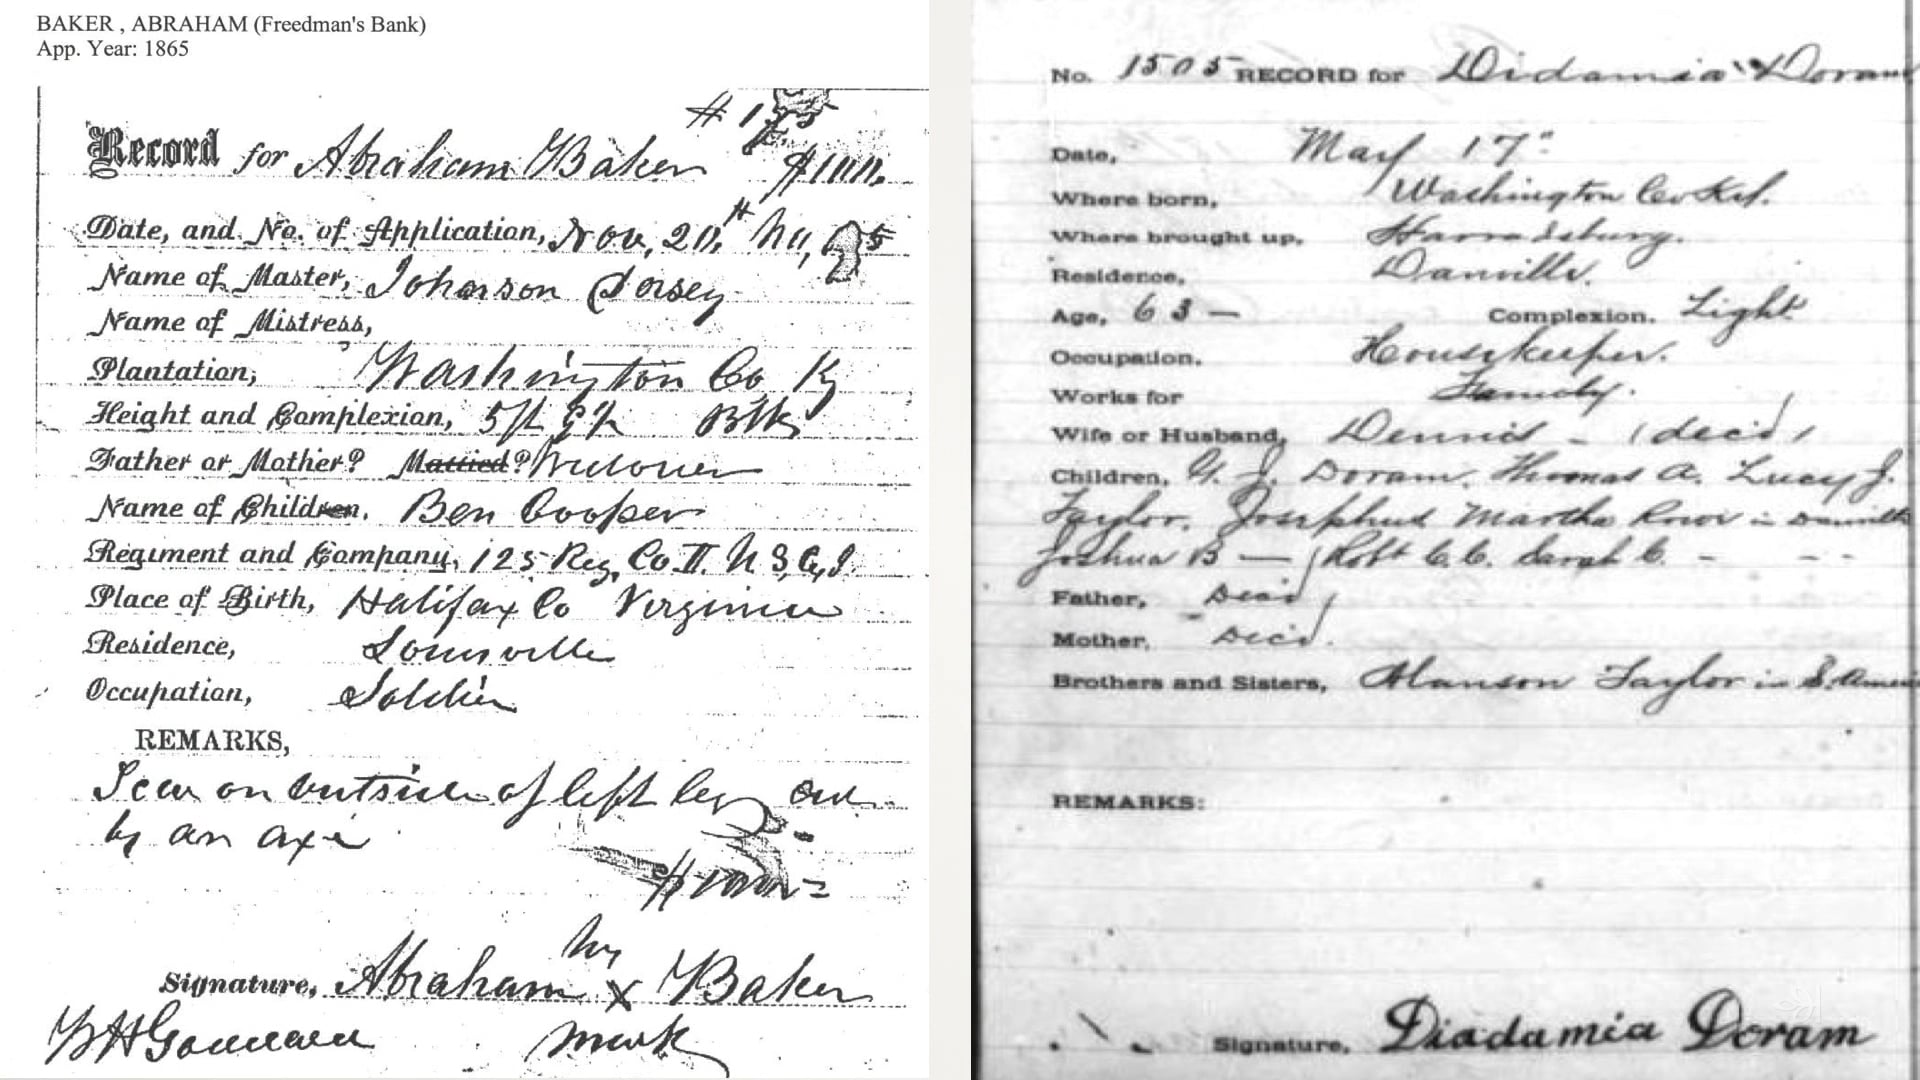 BAKER , ABRAHAM (Freedman's Bank)
App. Year: 1865
Record for Abraham Baker
Date, and No. of Application, Nov. 20,
Name of Master, Johnson Dorsey
Name of Mistress,
Plantation, Washington Co Ky
Height and Complexion, 5ft Blk
Father or Mother? Married? Widower
Name of Children. Ben Cooper
Regiment and Company, 125 Reg, Co. U.S.C.I.
Place of Birth, Halifax Co Virginia
Residence, Louisville
Occupation, Soldier
REMARKS,
Scar on outside of left leg
by an axe
his
Signature, Abraham X Baker
mark
No. 1505 RECORD for Didamia Doram
Date, May 17"
Where born, Washington Co Ky.
Where brought up, Harradsburg.
Residence, Danville.
Age, 63 — Complexion. Light
Occupation. Housekeeper.
Works for Family.
Wife or Husband, Dennis - (dec'd)
Children, G. J. Doram, Thomas A. Lucy J.
Taylor. Josephus Martha in Danville
Joshua B — Robt C. C. Sarah C. -
Father, Dec'd
Mother, Dec'd.
Brothers and Sisters, Alanson Taylor in S.
REMARKS:
Signature, Diadamia Doram